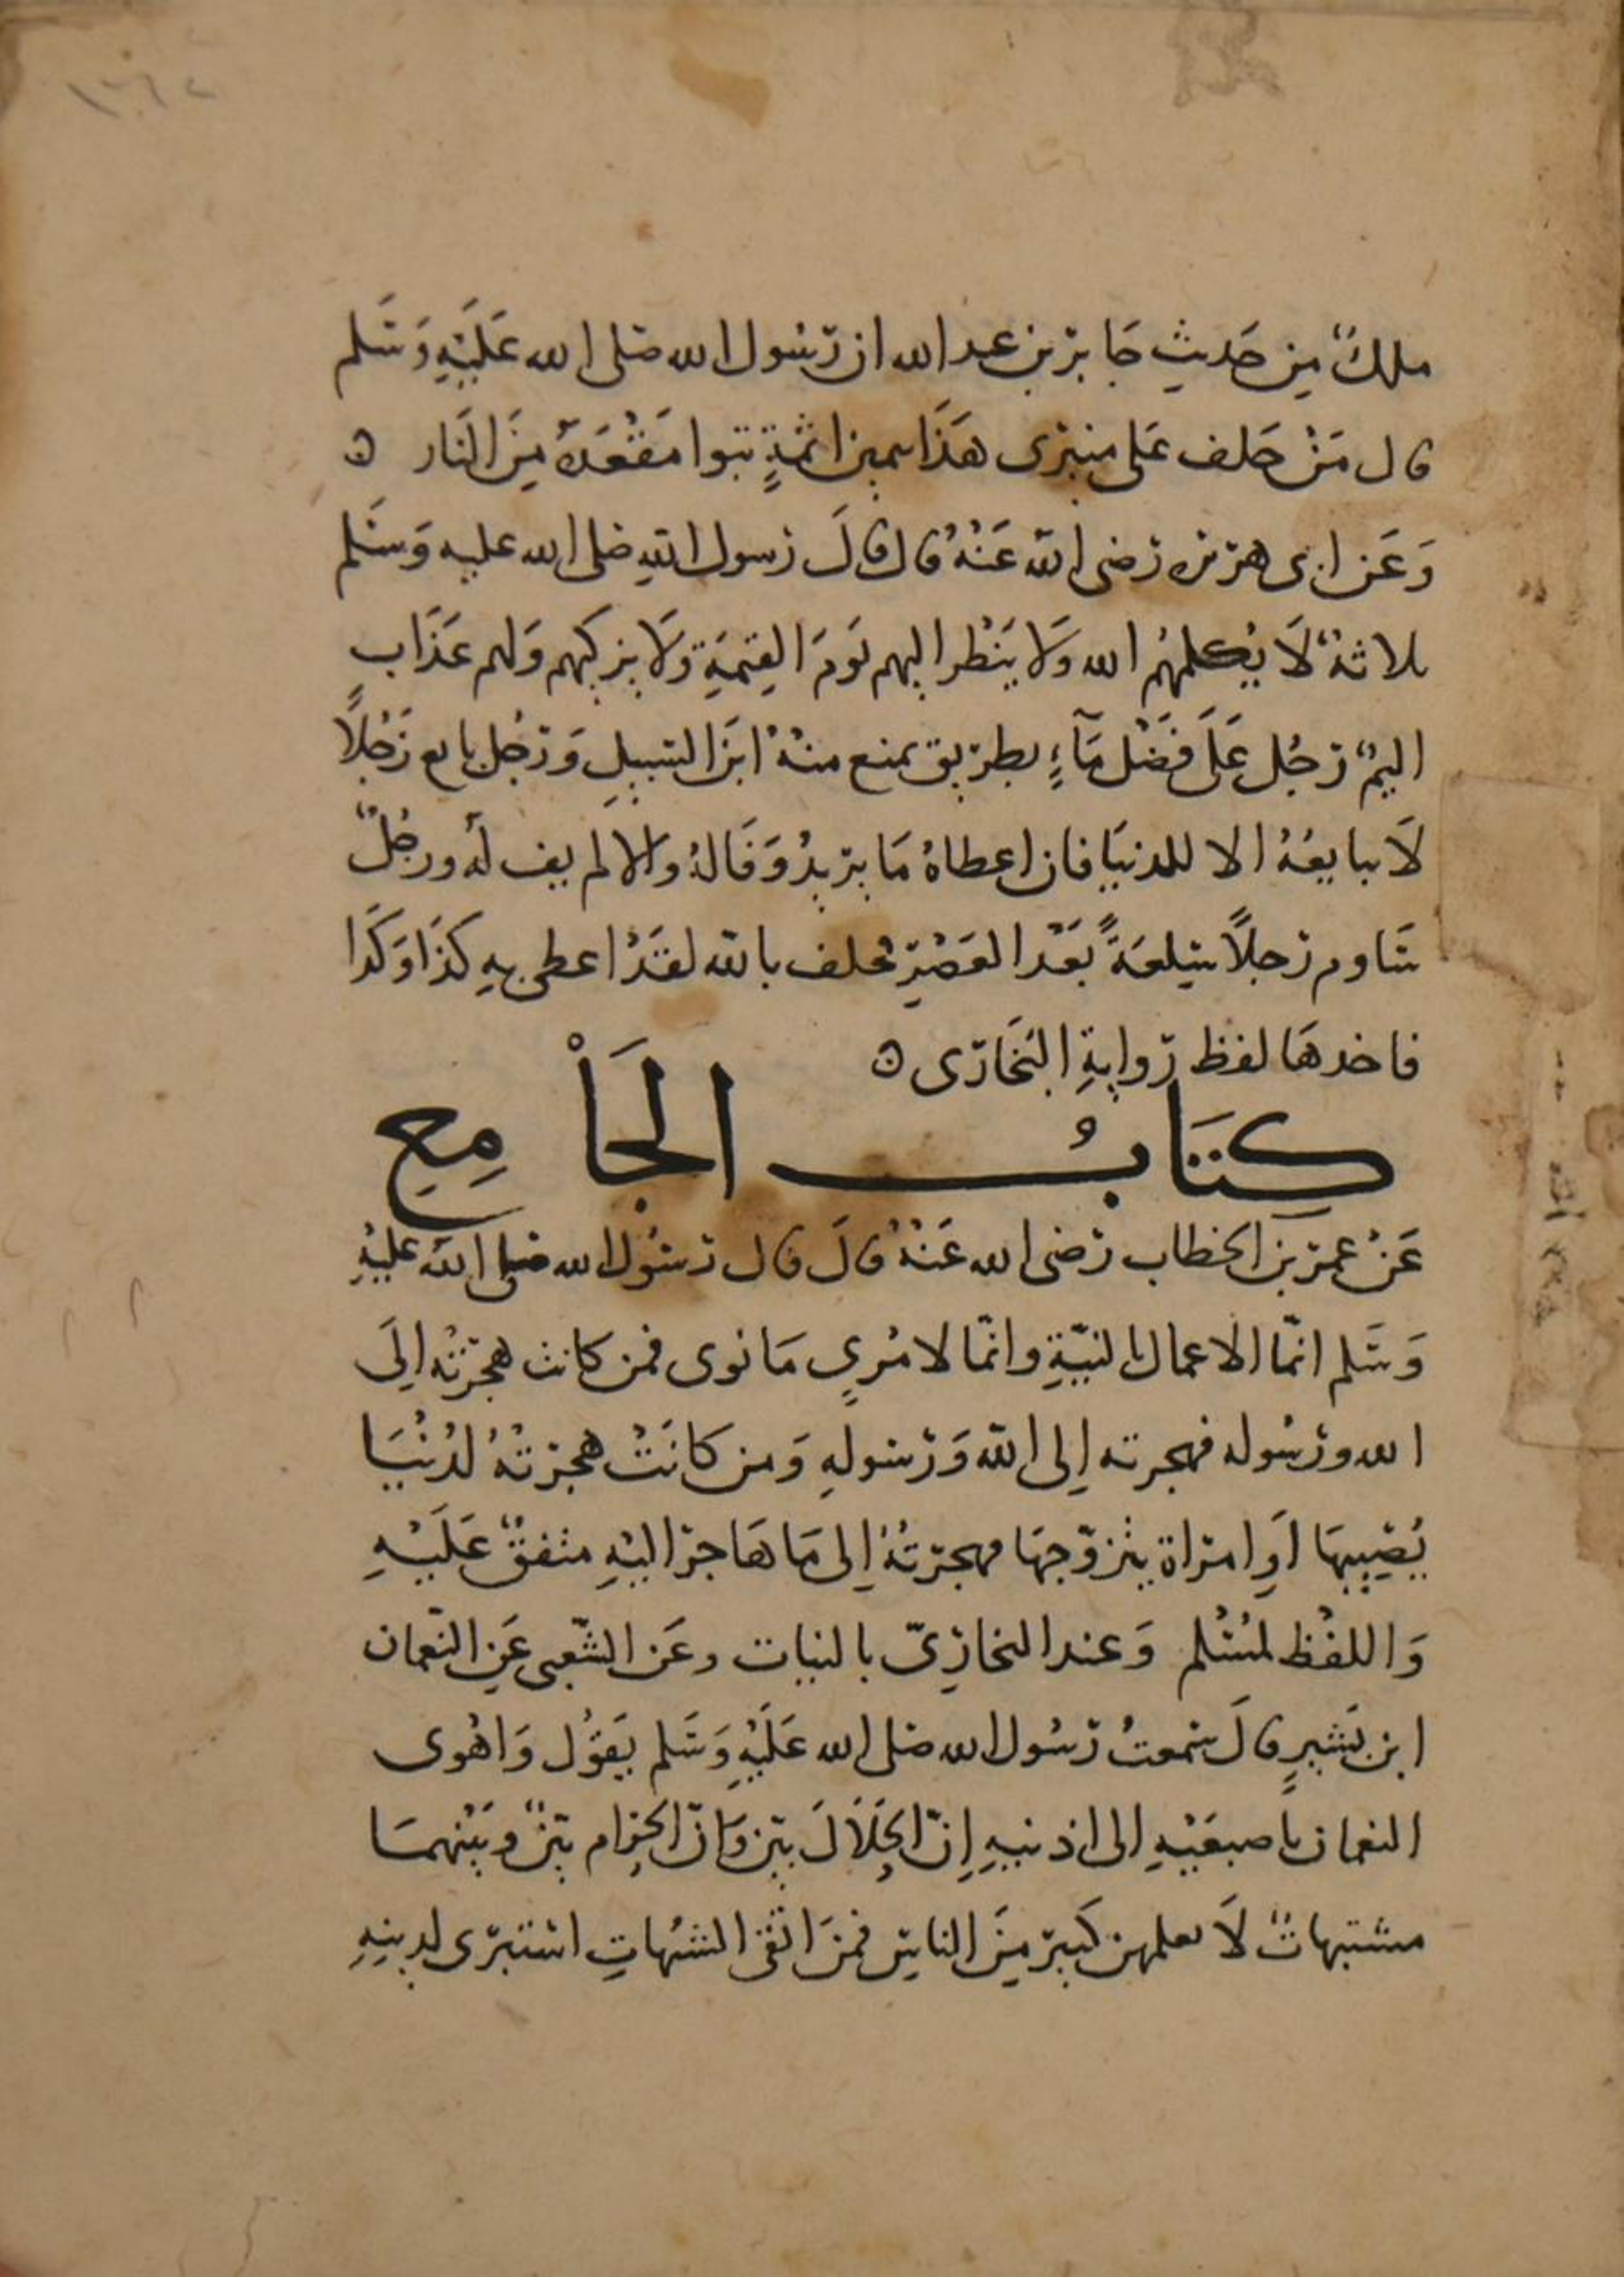 ملكٌ مِن حَديثِ جَابر بن عبد الله ان رَسُول الله صَلى الله عَلَيْهِ وَسَلم
قال مَنْ حَلف عَلى منبَرى هَذَا بيمين اثمةٍ تبوا مَقْعَدَهُ مِنَ النَار ه
وَعَن ابى هريره رَضى الله عَنْهُ قال قالَ رَسول اللهِ صَلى الله عليه وَسَلم
ثلاثةٌ لَا يُكلمهُم الله وَلَا يَنْظر اليهم يَومَ القِيمَةِ وَلَا يزكيهم وَلهم عَذَاب
اليمٌ رَجُل عَلَى فَضْل مَآءٍ بطريق يمنع منهُ ابنَ السَبيلِ وَرَجُل بايع رَجُلًا
لَا يبايعُهُ الا للدنيَا فان اعطاهُ مَا يريدُ وَفَا لهُ والا لم يف لَهُ ورجُلٌ
سَاوم رَجلاً سِلعَةً بَعْدَ العَصْرِ فحلف بالله لقَدْ اعطى بهِ كذَا وَكَذَا
فاخدهَا لفظ رِوايةِ البُخَارَى ه
كِتَابُ الجَاْمِعِ
عَنْ عمَر بن الخطاب رَضى الله عَنْهُ قالَ قال رَسُول الله صَلى الله عليْهِ
وَسَلم انمّا الاعمال بالنيّةِ وانمّا لامْرِىٍ مَا نوى فمن كانت هجْرَتْه اِلَى
الله ورَسُوله فهجرته اِلى الله وَرَسولهِ وَمن كانَتْ هجرَتْهُ لدُنْيَا
يُصِيبهَا اَوِ امرَاة يتزوّجهَا فهجرَتهُ اِلى مَا هَاجرَ اليْهِ متفقٌ عَلَيْهِ
وَاللفْظ لمسْلم وَعند البخارِىّ بالنيات وعَن الشّعبى عَنِ النعّمان
ابن بَشيرٍ قالَ سَمعتُ رَسُول الله صَلى الله عَلَيْهِ وَسَلم يَقوُل وَاهْوى
النعمان باصبعَيْهِ الى اذنيهِ اِنّ الحَلَالَ بَيّن وَانّ الحَرام بَيّنٌ وبَيْنهمَا
مشتبهاتٌ لَا يعلمهن كَثيرٌ مِنَ الناسِ فمنَ اتقَى الشبُهاتِ استبرَى لدينِهِ